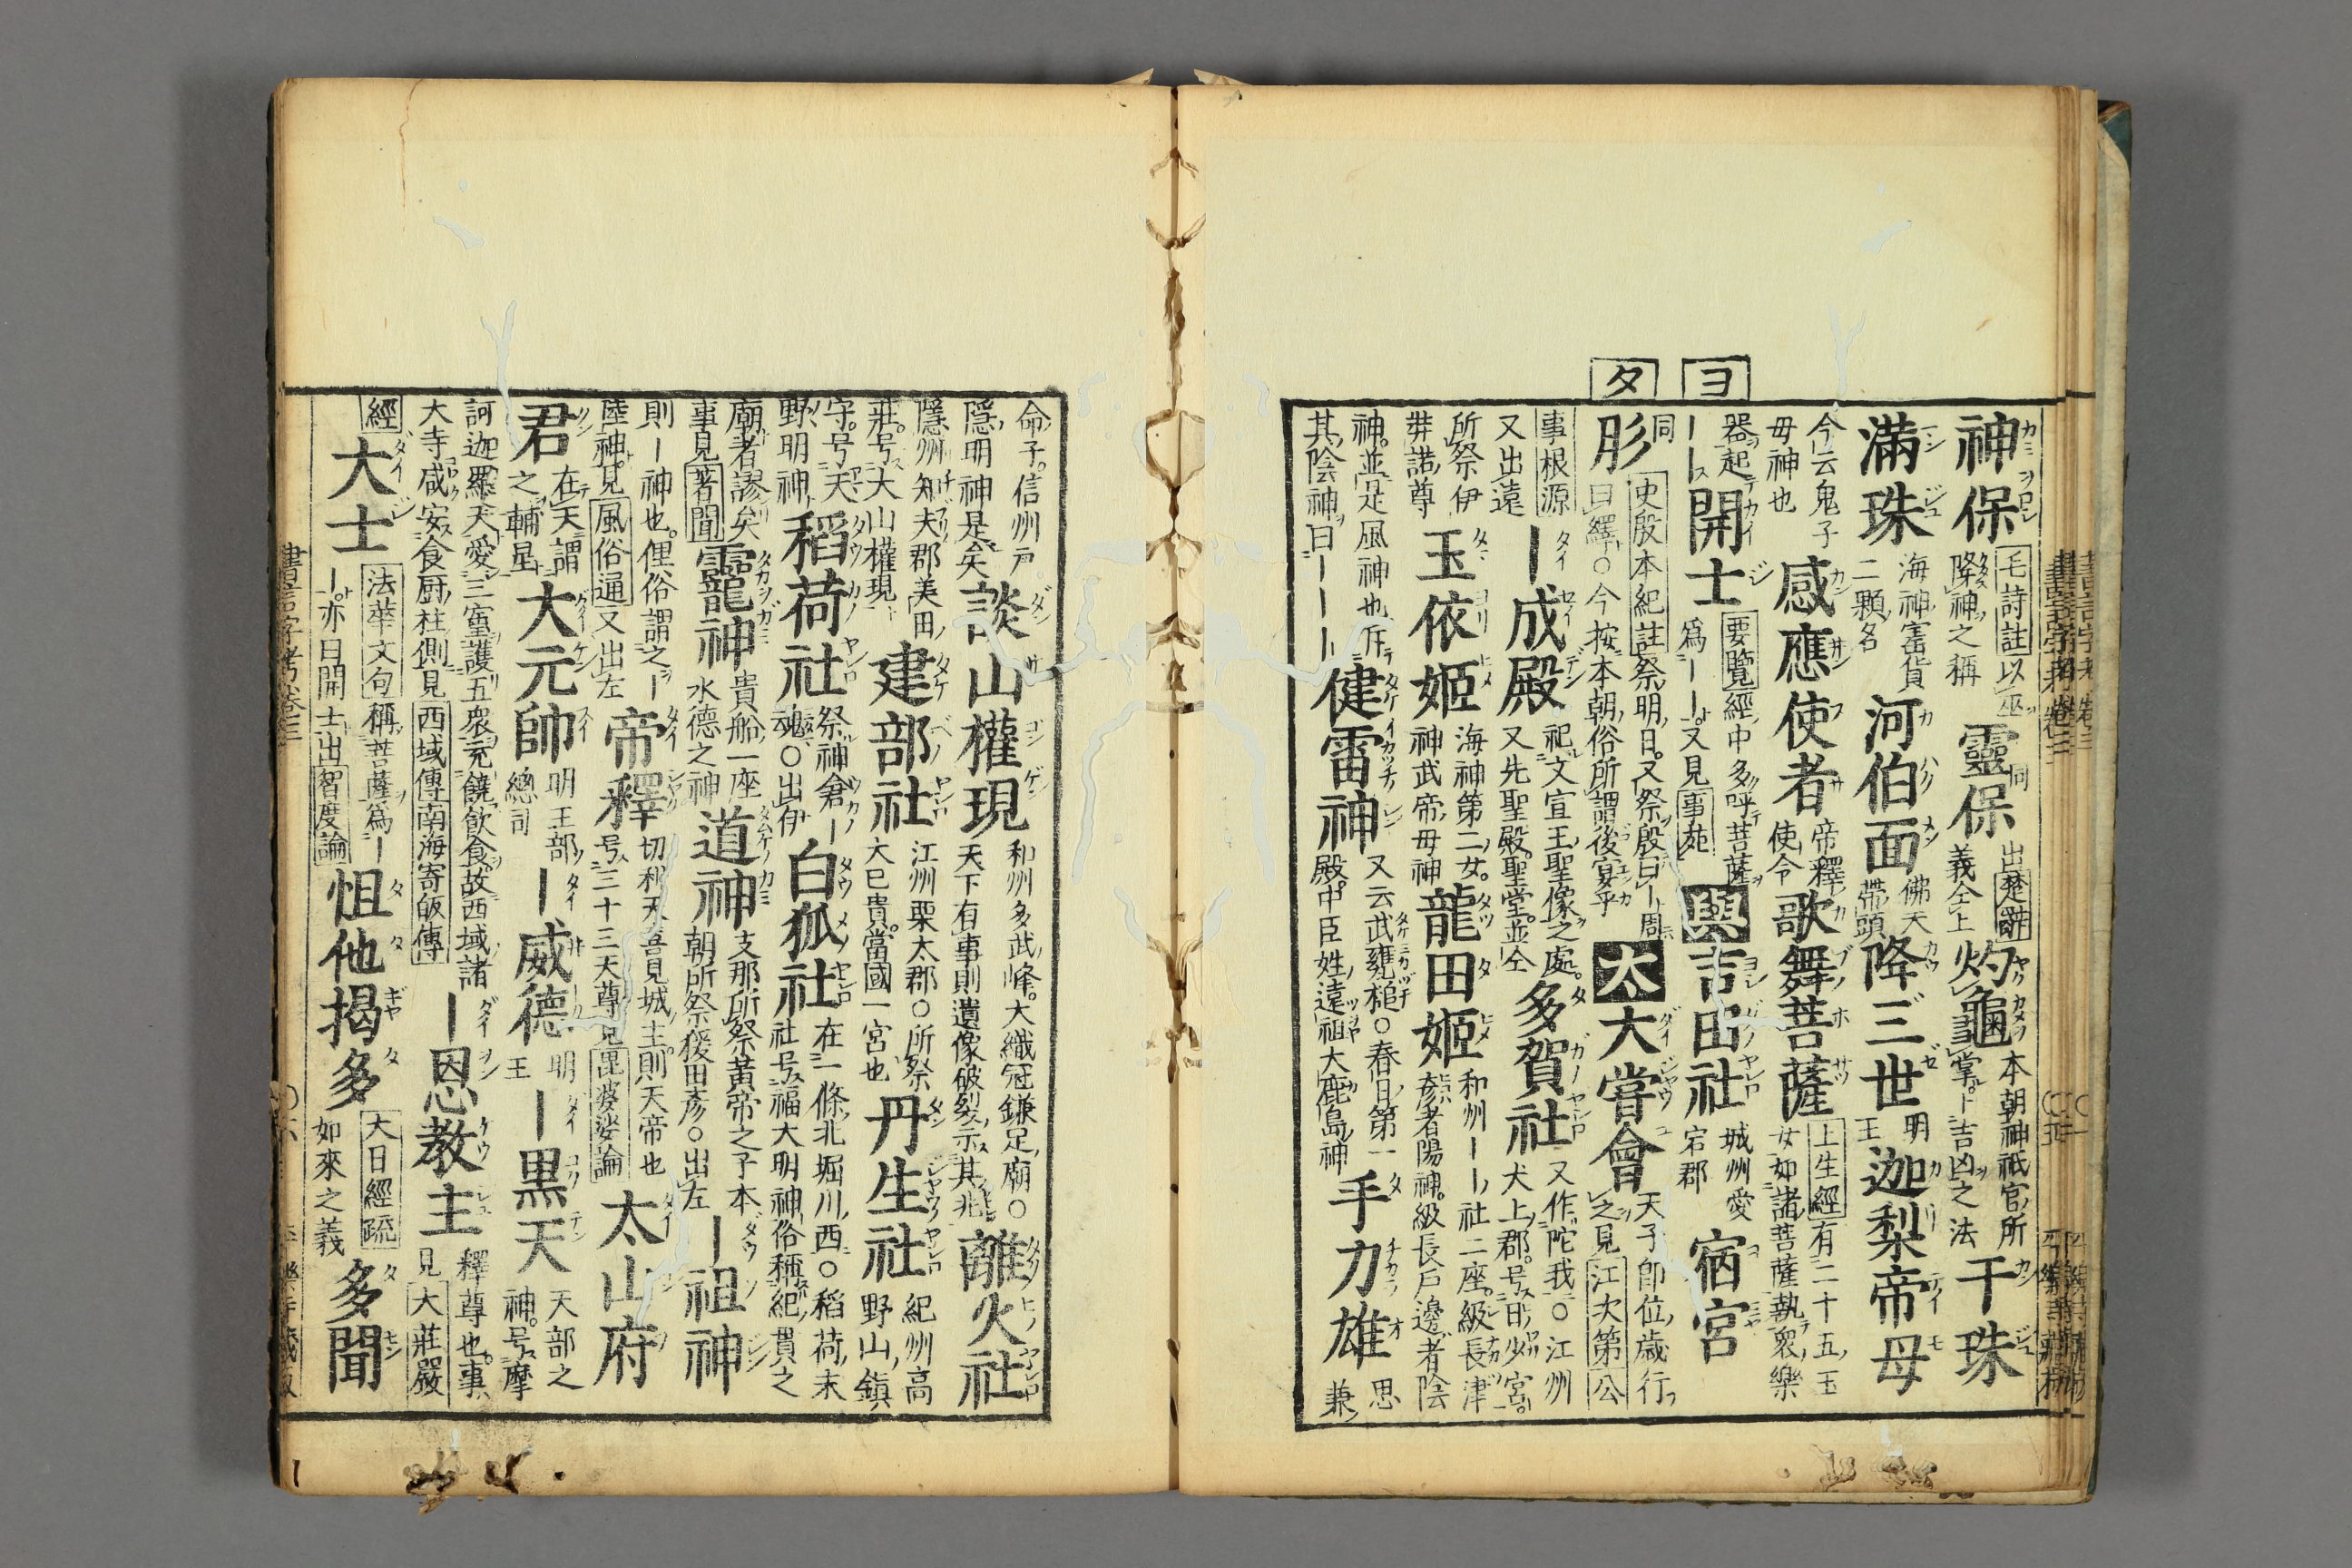 ヨ
タ
神保 毛詩註以巫降神之稱 靈保 同出楚辭義仝上 灼龜 本朝神祇官所掌卜吉凶之法 干珠
滿珠 海神寳貨二顆名 河伯面 佛天帶頭 降三世 明王 迦梨帝母
今云鬼子母神也 感應使者 帝釋使令 歌舞菩薩 上生經有二十五玉女如諸菩薩執衆樂
器起 開士 要覽經中多呼菩薩爲ーー又見事苑 與 吉田社 城州愛宕郡 宿宮
肜 同 史殷本紀註祭明日又祭殷曰ー周曰繹○今按本朝俗所謂後宴乎 太 大嘗會 天子卽位歲行之見江次第公
事根源 ー成殿 祀文宣王聖像之處又出遠又先聖殿聖堂並仝 多賀社 又作陀我○江州犬上郡号日少宮
所祭伊弉諾尊 玉依姬 海神第二女神武帝母神 龍田姬 和州ーー社二座級長津彥者陽神級長戶邊者陰
神並是風神也斥其陰神曰ーーー 健雷神 又云武甕槌○春日第一殿中臣姓遠祖大鹿島神 手力雄 思兼
命子信州戸隱明神是矣 談山權現 和州多武峰大織冠鎌足廟○天下有事則遺像破裂示其兆 離火社
隱州知夫郡美田莊号大山權現 建部社 江州栗太郡○所祭大巳貴當國一宮也 丹生社 紀州高野山鎭
守号天野明神 稻荷社 祭神倉ー魂○出伊 白狐社 在一條北堀川西○稻荷末社号福大明神俗稱紀貫之
廟者謬矣事見著聞 龗神 貴船一座水德之神 道神 支那所祭黃帝之子本朝所祭猨田彥○出左 ー祖神
則ー神也俚俗謂之ー陸神見風俗通又出左 帝釋 切利天善見城主則天帝也号三十三天尊見毘婆娑論 太山府
君 在天謂之輔星 大元帥 明王部總司 ー威德 明王 ー黑天 天部之神号摩
訶迦羅天愛三寳護五衆充饒飲食故西域諸大寺咸安食厨柱側見西域傳南海寄皈傳 ー恩教主 釋尊也事見大莊嚴
經 大士 法華文句稱菩薩爲ーー亦曰開士出智度論 怚他揭多 大日經疏如來之義 多聞
書言字考卷三